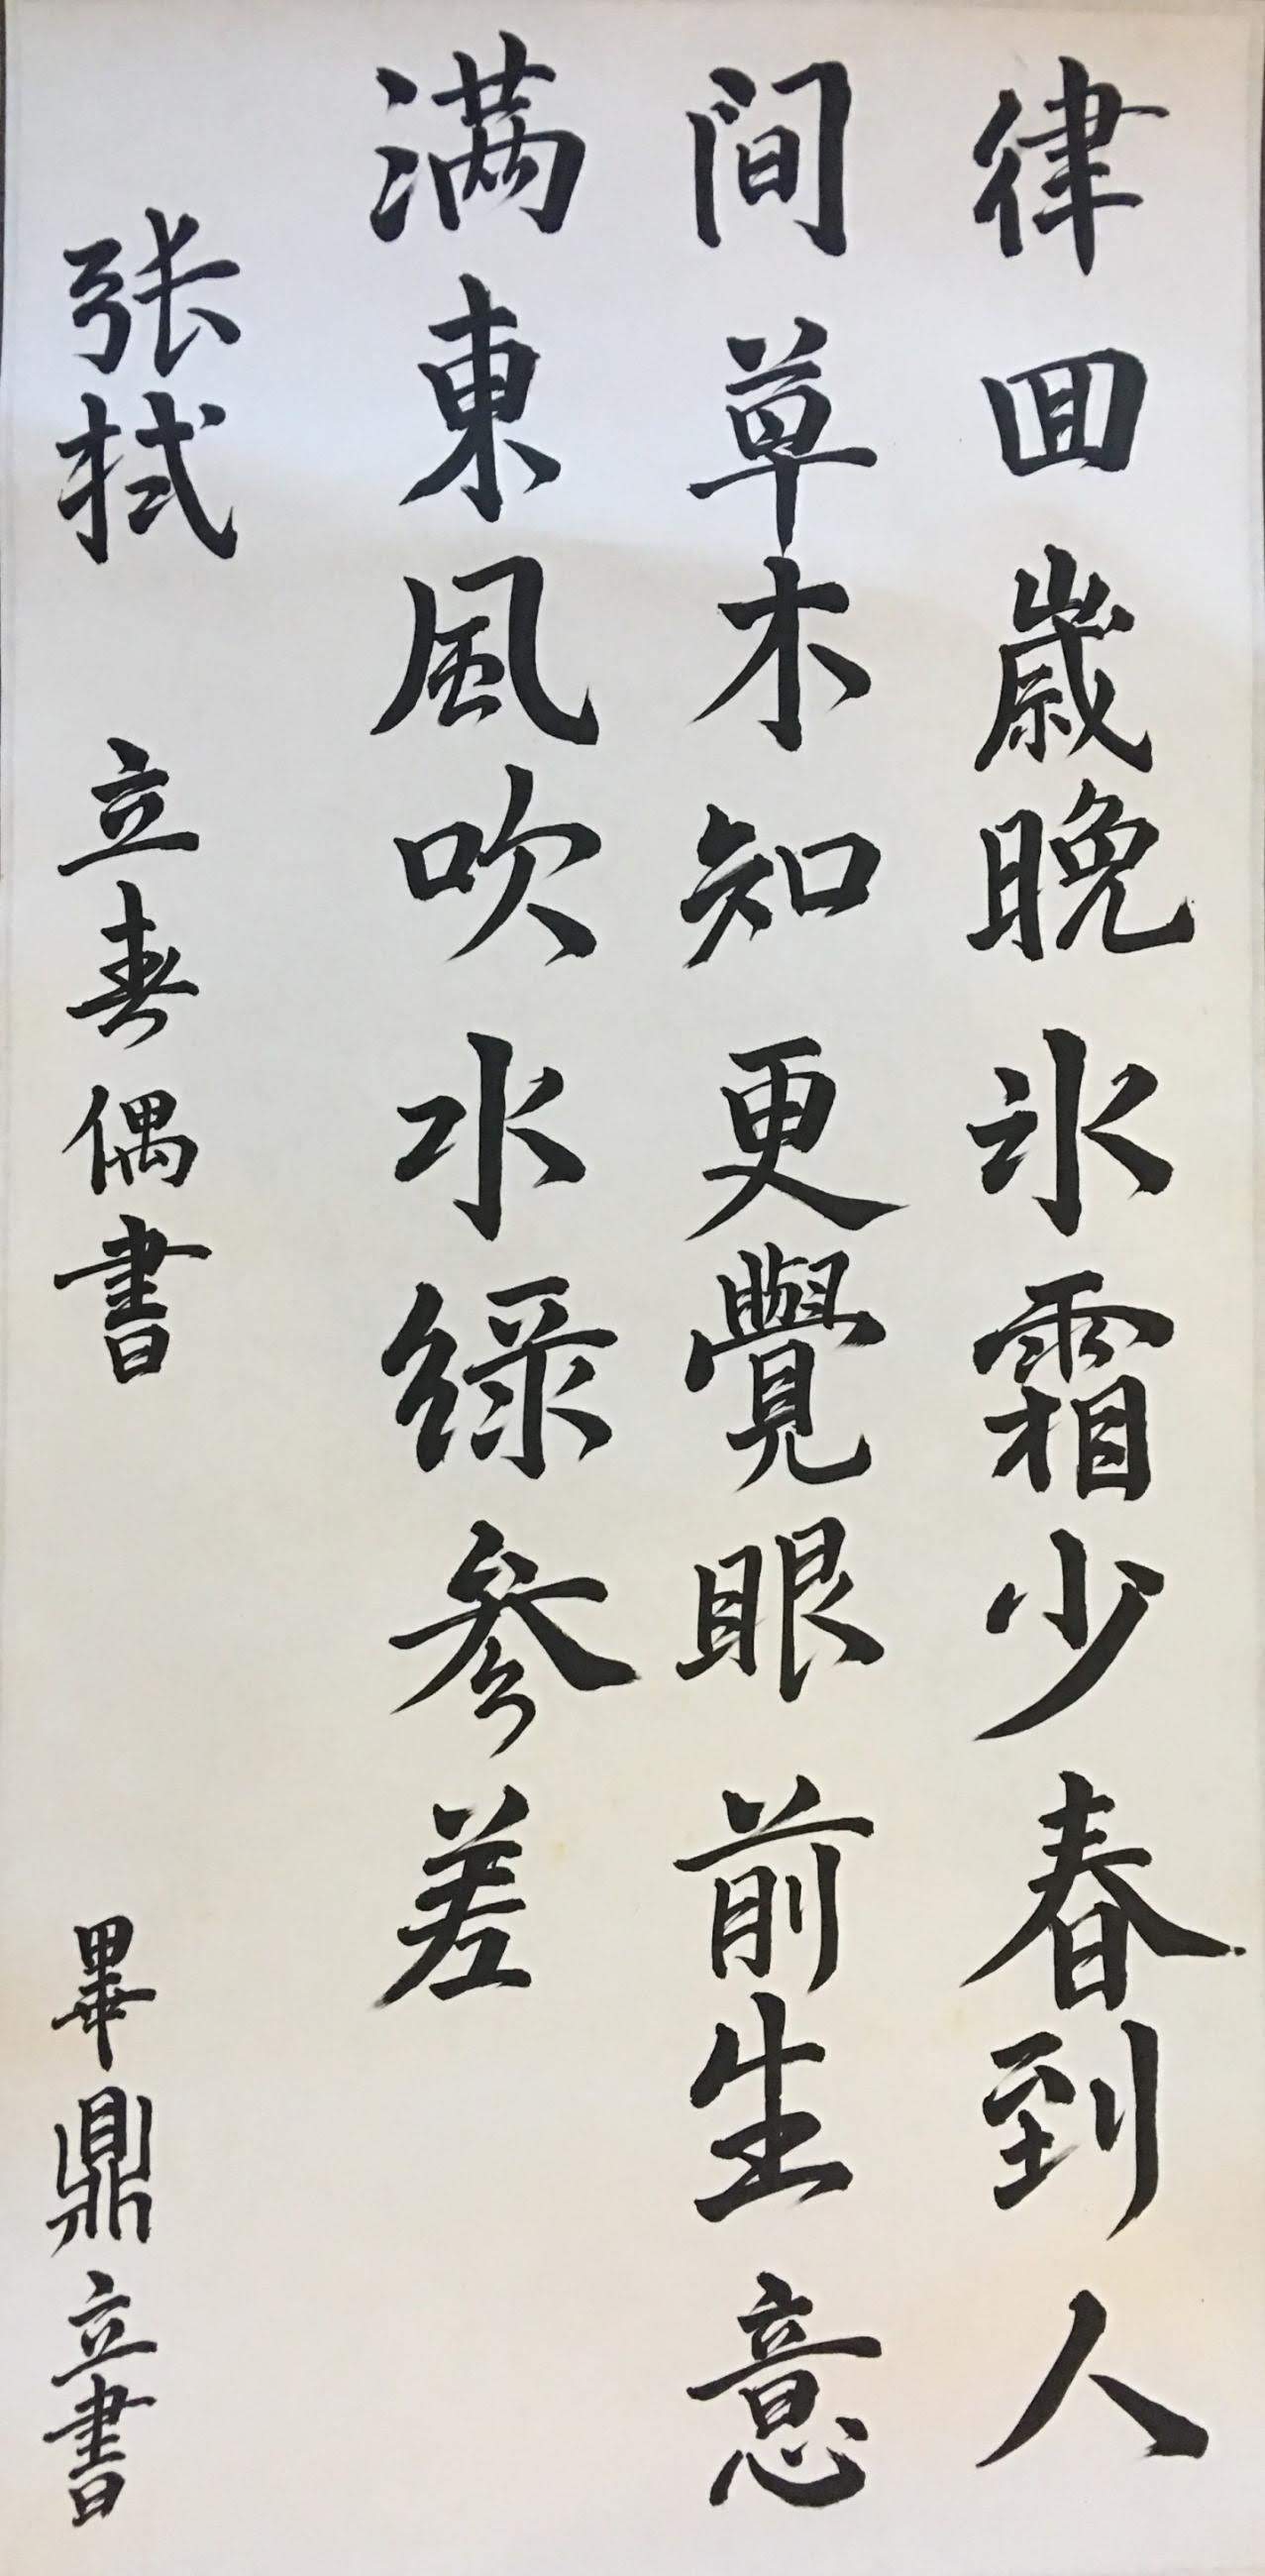 律回歲晚氷霜少春到人
间草木知更覺眼前生意
满東風吹水綠參差
张栻 立春偶書
畢鼎立書